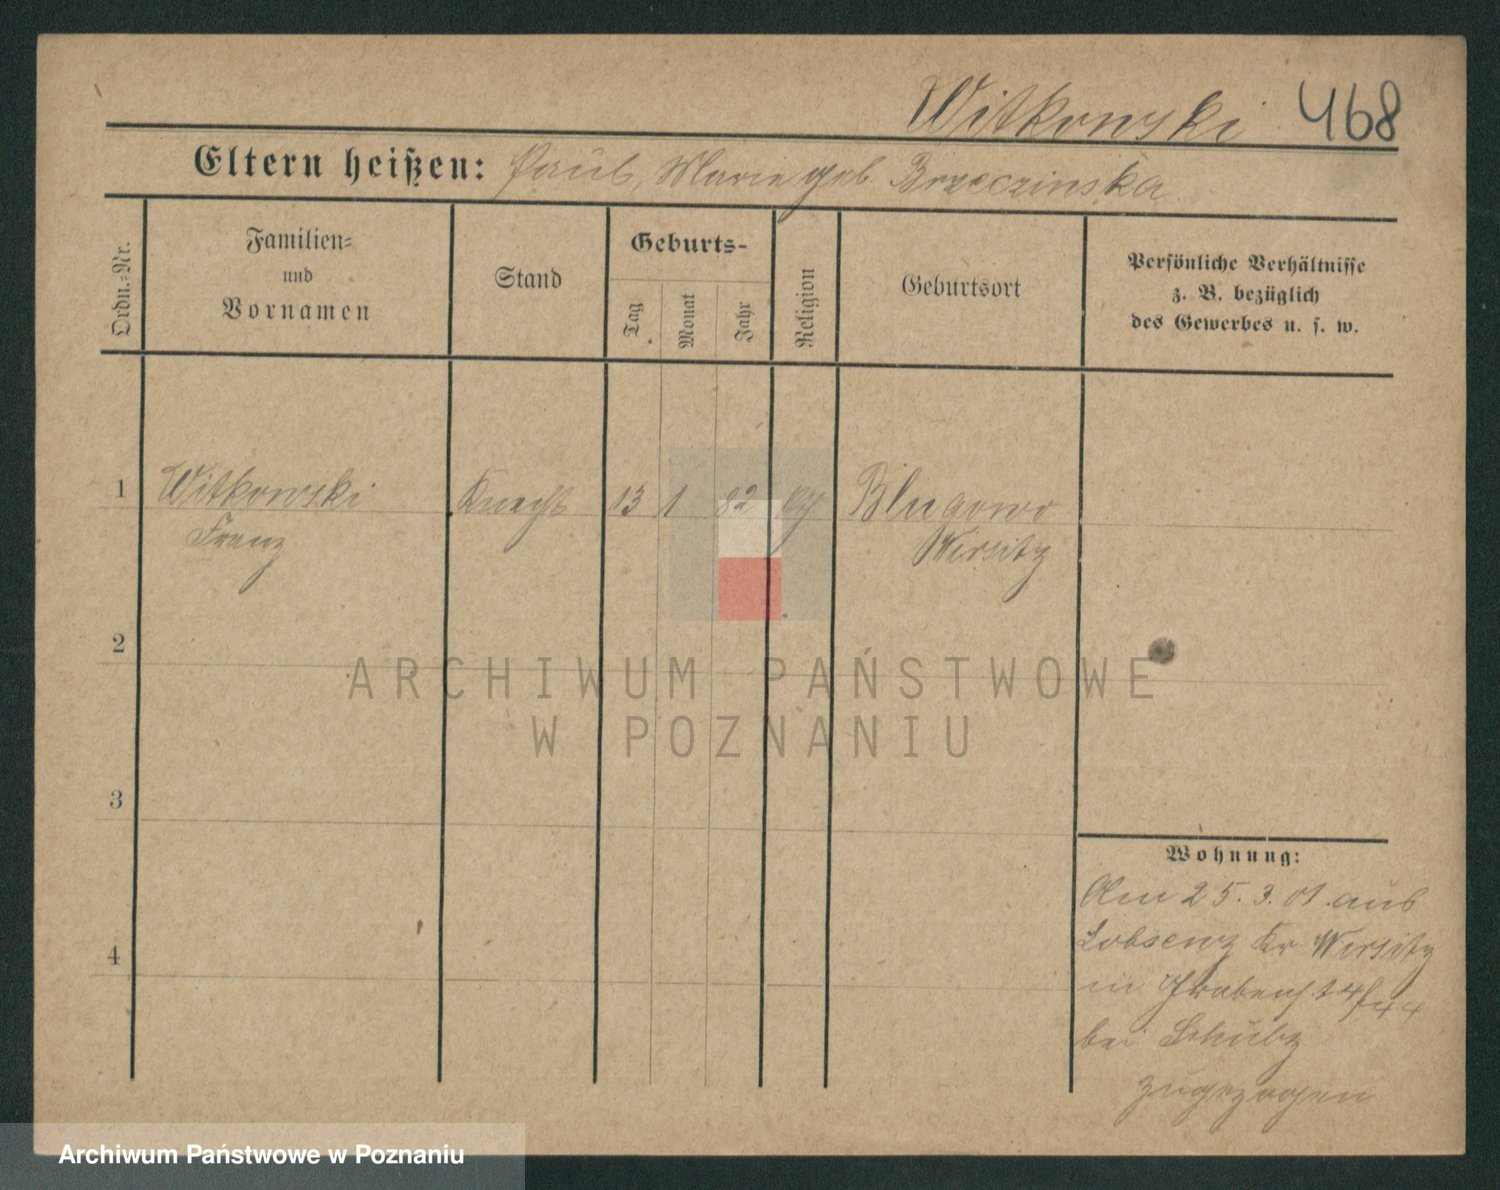 Witkowski 468
Eltern heißen: Paul, Marie geb. Brzeczinska
Ordn.-Nr.
Familien-
und
Vornamen
Stand
Geburts-
Tag
Monat
Jahr
Religion
Geburtsort
Persönliche Verhältnisse
z. B. bezüglich
des Gewerbes u. s. w.
1 Witkowski Knecht 13 1 82 Blugowo
Franz Wirsitz
2
3
4
Wohnung:
Am 25. 3. 01 aus
Lobsenz Kr Wirsitz
in Grabenst
bei Schulz
zugezogen
ARCHIWUM PAŃSTWOWE
W POZNANIU
Archiwum Państwowe w Poznaniu